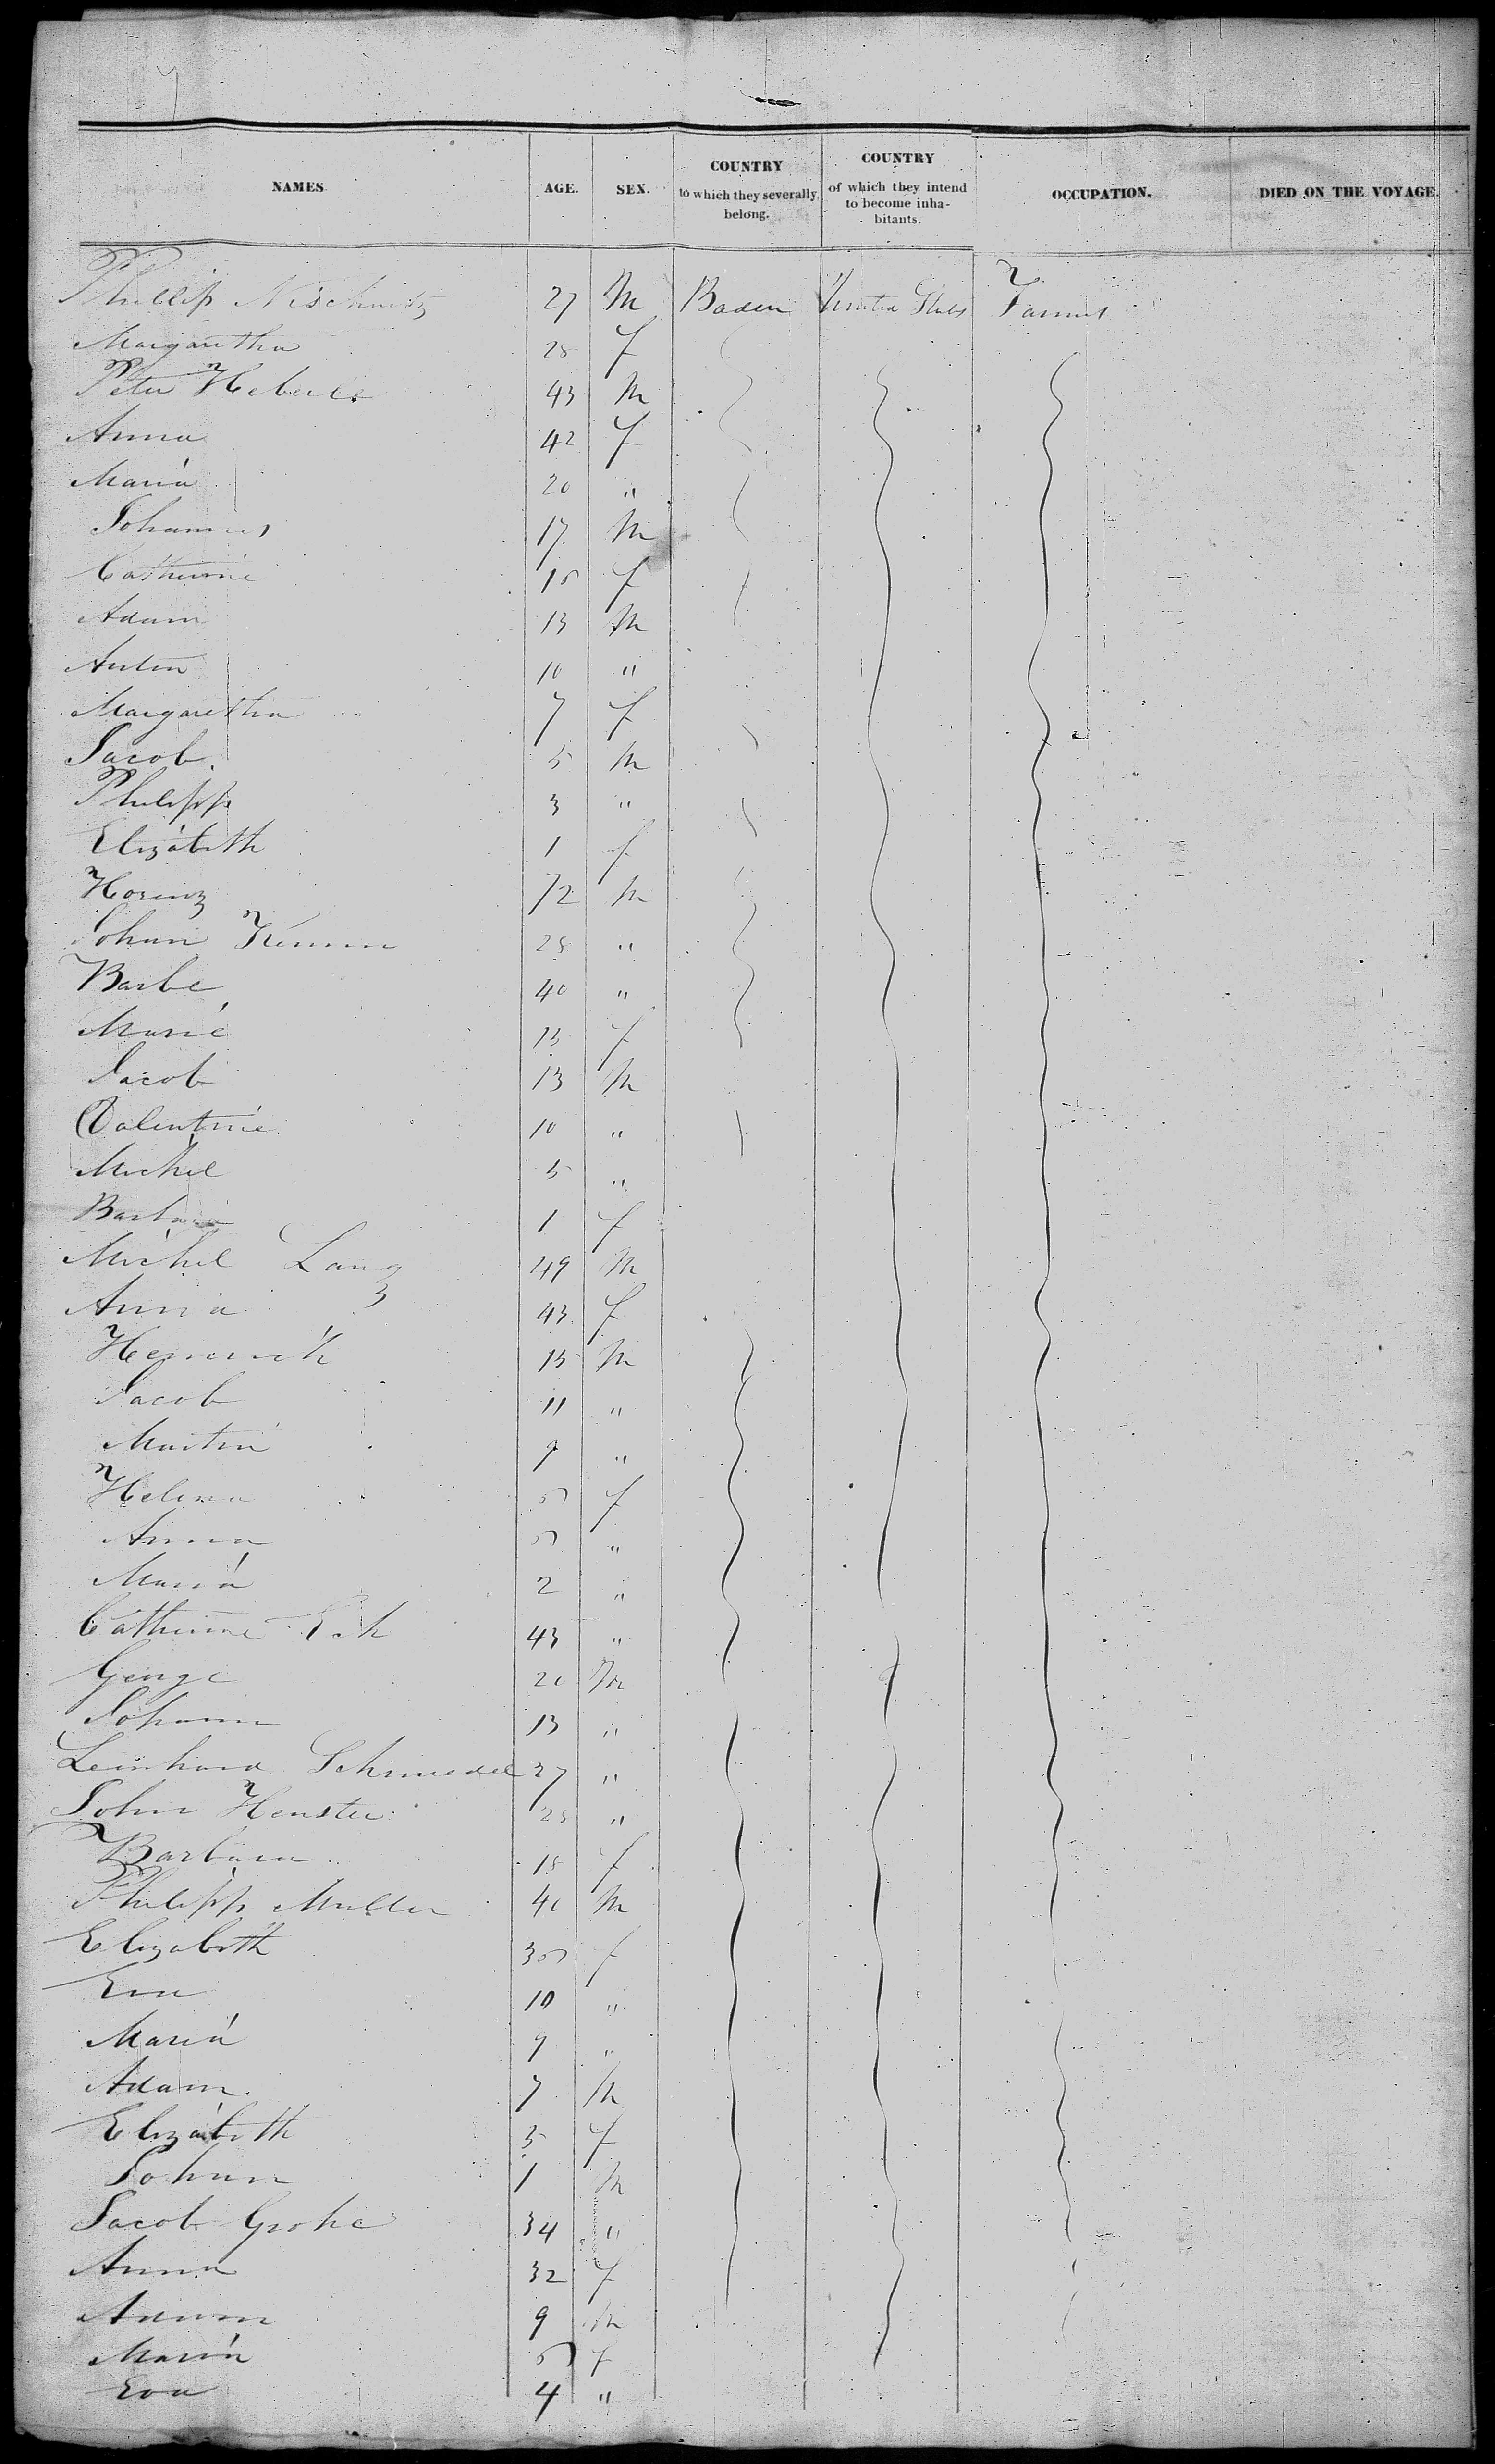 NAMES AGE. SEX. COUNTRY to which they severally belong. COUNTRY of which they intend to become inhabitants. OCCUPATION. DIED ON THE VOYAGE
Phillip 27 M Baden United States Farmer
Margaretha 28 f
Peter Heberle 43 M
Anna 42 f
Maria 20 "
Johannes 17 M
Catherine 15 f
Adam 13 M
Anton 10 "
Margaretha 7 f
Jacob 5 M
Philipp 3 "
Elizabeth 1 f
72 M
Johan 28 "
Barbe 40 "
Marie 15 f
Jacob 13 M
Valentine 10 "
Michel 5 "
Barbara 1 f
Michel Lang 49 M
Anna 43 f
Heinrich 15 M
Jacob 11 "
Martin 9 "
Helena 5 f
Anna 5 "
Maria 2 "
Catherine 43 "
George 20 M
Johann 13 "
Leinhard 27 "
John 25 "
Barbara 18 f
Philipp Muller 40 M
Elizabeth 35 f
Eva 10 "
Maria 9 "
Adam 7 M
Elizabeth 5 f
Johan 1 M
Jacob Grohe 34 "
Anna 32 f
Adam 9 M
Maria 5 f
Eva 4 "